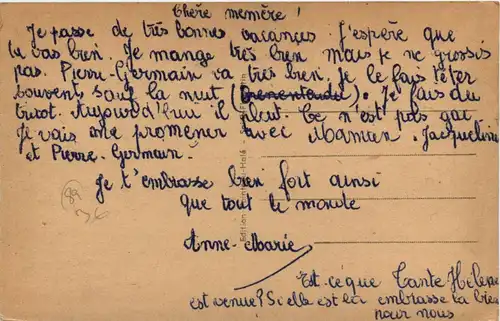 Chère memère !
Je passe de très bonnes vacances. J'espère que
tu vas bien. Je mange très bien mais je ne grossis
pas. Pierre-Germain va très bien, je le fais têter
souvent, sauf la nuit (bien entendu). Je fais du
tricot. Aujourd'hui il pleut. Ce n'est pas gai.
Je vais me promener avec Maman, Jacqueline
et Pierre-Germain.
Je t'embrasse bien fort ainsi
que tout le monde
Anne-Marie
89
Est-ce que Tante Helene
est venue? Si elle est là embrasse la bien
pour nous
Edition